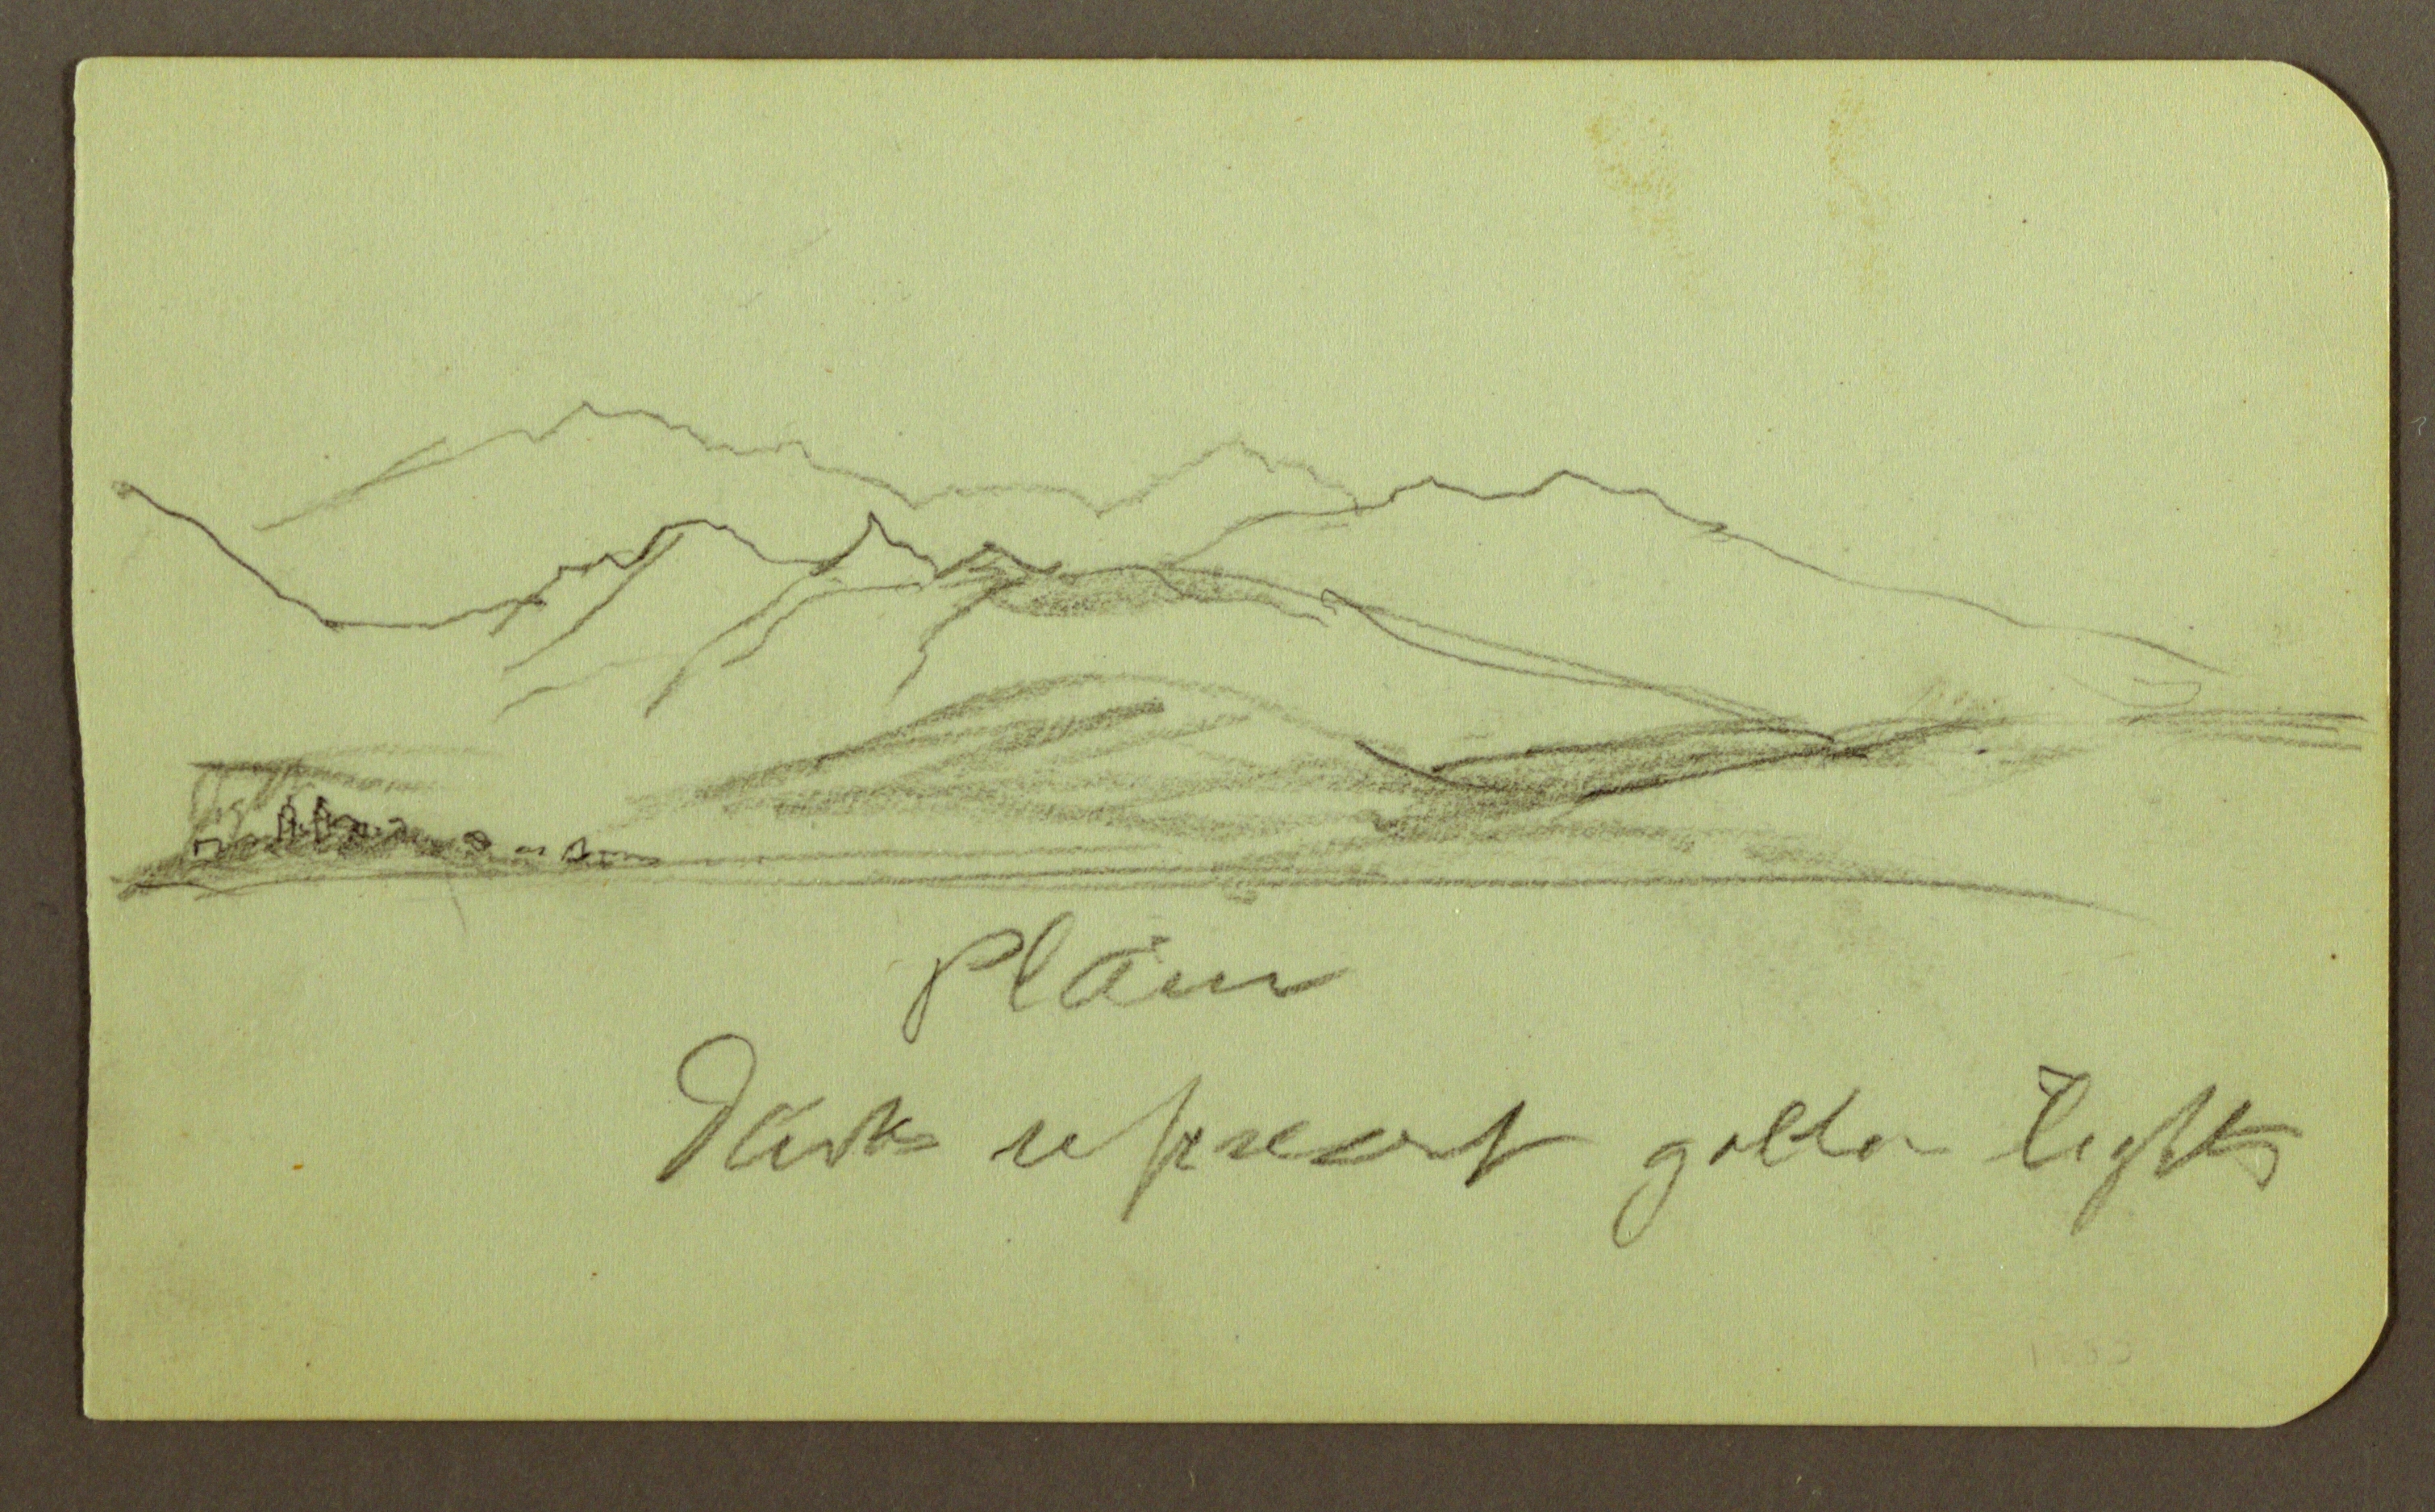 Plain
Darks represent golden lights